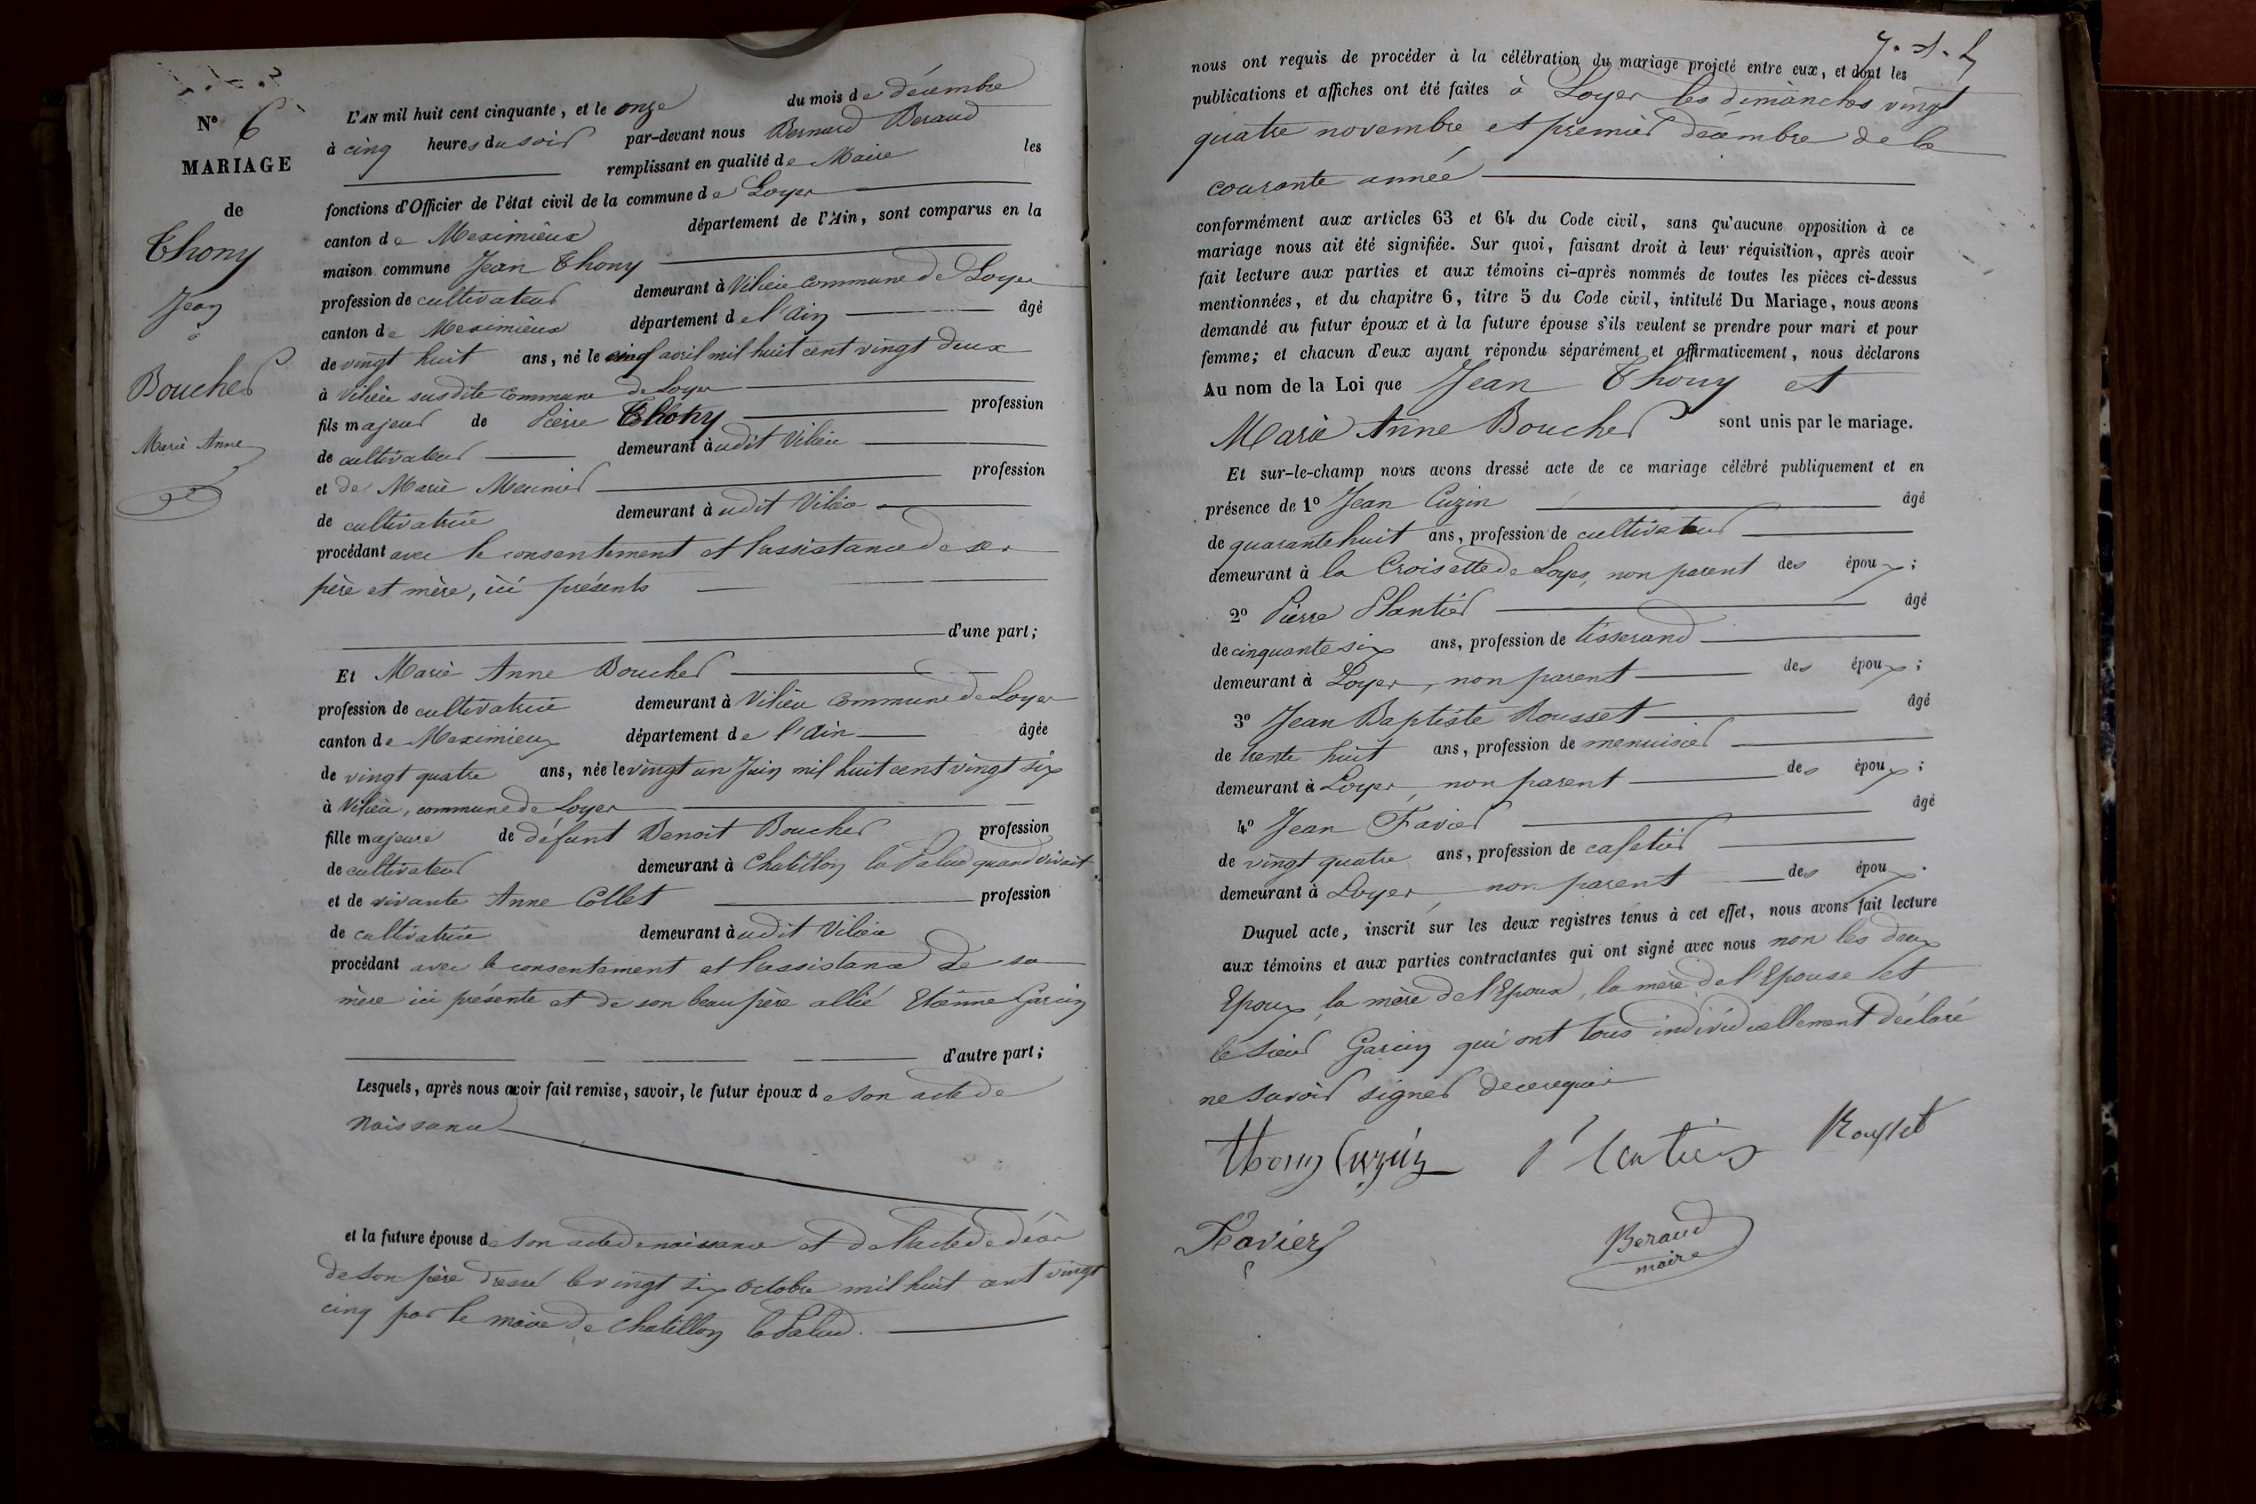 Nº 6
MARIAGE
de
Thony
Jean
à
Boucher
Marie Anne
L'AN mil huit cent cinquante, et le onze du mois de décembre
à cinq heures du soir par-devant nous Bernard Beraud
remplissant en qualité de Maire les
fonctions d'Officier de l'état civil de la commune de Loyes
canton de Meximieux département de l'Ain, sont comparus en la
maison commune Jean Thony
profession de cultivateur demeurant à Vilieu commune de Loyes
canton de Meximieux département de l'Ain âgé
de vingt huit ans, né le cinq avril mil huit cent vingt deux
à Vilieu susdite commune de Loyes
fils majeur de Pierre Thony profession
de cultivateur demeurant à udit Vilieu
et de Marie Meunier profession
de cultivatrice demeurant à udit Vilieu
procédant avec le consentement et l'assistance de ses
père et mère, ici présents
d'une part;
Et Marie Anne Boucher
profession de cultivatrice demeurant à Vilieu commune de Loyes
canton de Meximieux département de l'Ain âgée
de vingt quatre ans, née le vingt un Juin mil huit cent vingt six
à Vilieu, commune de Loyes
fille majeure de défunt Benoit Boucher profession
de cultivateur demeurant à Chatillon la Palud quand vivait
et de vivante Anne Collet profession
de cultivatrice demeurant à udit Vilieu
procédant avec le consentement et l'assistance de sa
mère ici présente et de son beau père allié Etienne Garcin
d'autre part;
Lesquels, après nous avoir fait remise, savoir, le futur époux de son acte de
naissance
et la future épouse de son acte de naissance et de l'acte de décès
de son père dressé le vingt six octobre mil huit cent vingt
cinq par le maire de Chatillon la Palud.
nous ont requis de procéder à la célébration du mariage projeté entre eux, et dont les
publications et affiches ont été faites à Loyes les dimanches vingt
quatre novembre et premier décembre de la
courante année
conformément aux articles 63 et 64 du Code civil, sans qu'aucune opposition à ce
mariage nous ait été signifiée. Sur quoi, faisant droit à leur réquisition, après avoir
fait lecture aux parties et aux témoins ci-après nommés de toutes les pièces ci-dessus
mentionnées, et du chapitre 6, titre 5 du Code civil, intitulé Du Mariage, nous avons
demandé au futur époux et à la future épouse s'ils veulent se prendre pour mari et pour
femme; et chacun d'eux ayant répondu séparément et affirmativement, nous déclarons
Au nom de la Loi que Jean Thony et
Marie Anne Boucher sont unis par le mariage.
Et sur-le-champ nous avons dressé acte de ce mariage célébré publiquement et en
présence de 1º Jean Cuzin âgé
de quarante huit ans, profession de cultivateur
demeurant à la Croisette de Loyes, non parent des époux;
2º Pierre Plantier âgé
de cinquante six ans, profession de tisserand
demeurant à Loyes, non parent des époux;
3º Jean Baptiste Rousset âgé
de trente huit ans, profession de menuisier
demeurant à Loyes, non parent des époux;
4º Jean Favier âgé
de vingt quatre ans, profession de cafetier
demeurant à Loyes, non parent des époux.
Duquel acte, inscrit sur les deux registres tenus à cet effet, nous avons fait lecture
aux témoins et aux parties contractantes qui ont signé avec nous non les deux
Epoux, la mère de l'Epoux, la mère de l'Epouse et
le sieur Garcin qui ont tous individuellement déclaré
ne savoir signer de ce requis
thony Cuzin Plantier Rousset
Favier
Beraud
maire